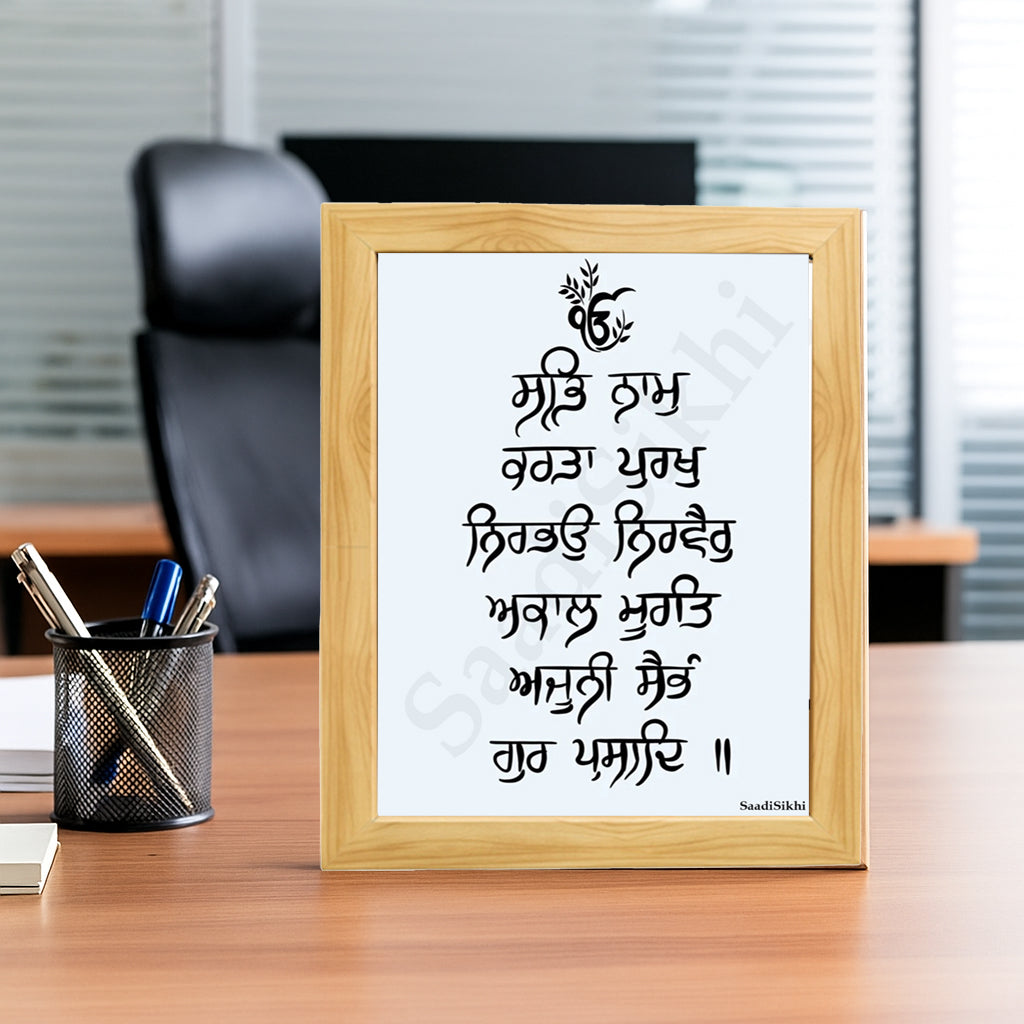 ੴ
ਸਤਿ ਨਾਮੁ
ਕਰਤਾ ਪੁਰਖੁ
ਨਿਰਭਉ ਨਿਰਵੈਰੁ
ਅਕਾਲ ਮੂਰਤਿ
ਅਜੂਨੀ ਸੈਭੰ
ਗੁਰ ਪ੍ਰਸਾਦਿ ॥
SaadiSikhi
SaadiSikhi